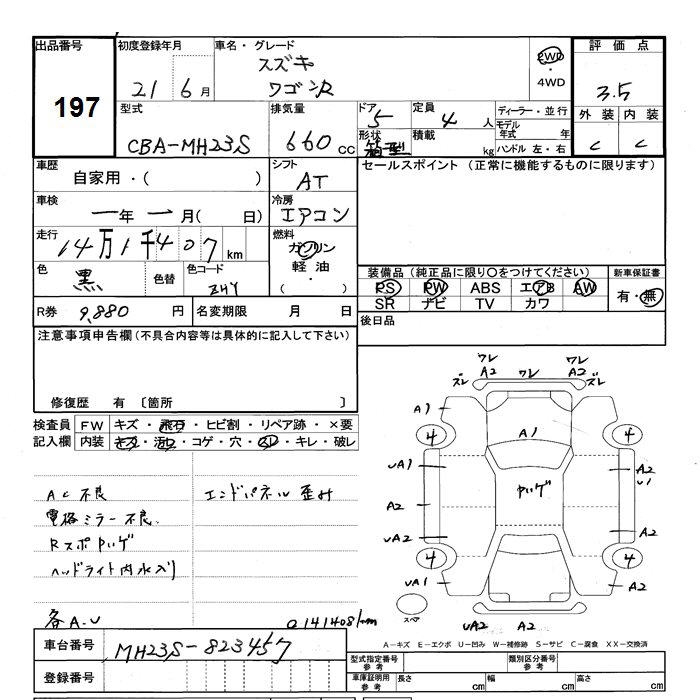 出品番号
197
初度登録年月
21 6月
車名・グレード
スズキ
ワゴンR
2WD
・
4WD
評価点
3.5
外装 内装
C C
型式
CBA-MH23S
排気量
660 cc
ドア
5
形状
箱型
定員
4 人
積載
kg
ディーラー・並行
モデル年式 年
ハンドル 左・右
車歴
自家用・( )
シフト
AT
セールスポイント (正常に機能するものに限ります)
車検
一年一月( 日)
冷房
エアコン
走行
14万1千407km
燃料
ガソリン
軽油
・
( )
色
黒
色替
色コード
ZMV
装備品 (純正品に限り〇をつけてください)
PS PW ABS エアB AW
SR ナビ TV カワ
新車保証書
有・無
R券 9,880 円
名変期限 月 日
後日品
注意事項申告欄 (不具合内容等は具体的に記入して下さい)
修復歴 有 〔箇所 〕
検査員記入欄
FW キズ・飛石・ヒビ割・リペア跡・×要
内装 キズ・汚レ・コゲ・穴・スレ・キレ・破レ
AC不良
エンドパネル歪み
電格ミラー不良
Rスポ ハゲ
ヘッドライト内水入り
各A.U
0141408km
ワレ
A2
ズレ
ワレ
ワレ
A2
ズレ
A1
4
4
A1
uA1
A2
u1
ハゲ
A2
uA2
A2
4
4
uA1
A2
スペア
uA2 A2
A-キズ E-エクボ U-凹み W-補修跡 S-サビ C-腐食 XX-交換済
車台番号
MH23S-823457
登録番号
型式指定番号
参考
類別区分番号
参考
車庫証明用
参考
長さ cm 幅 cm 高さ cm